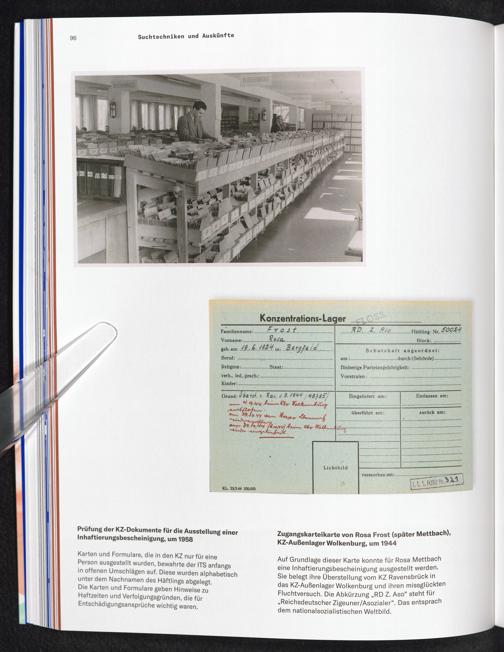 96
Suchtechniken und Auskünfte
FLOSS
Konzentrations-Lager
Familienname: Frost
RD Z Aso
Häftling-Nr. 50024
Vorname: Rosa
Block:
geb. am: 19.6.1924 in: Bergfeld
Schutzhaft angeordnet:
Beruf:
am: durch (Behörde):
Religion: Staat:
Bisherige Parteizugehörigkeit:
verh., led., gesch.:
Vorstrafen:
Kinder:
Grund:
Eingeliefert am:
Entlassen am:
überführt am:
zurück am:
Lichtbild
KL
Prüfung der KZ-Dokumente für die Ausstellung einer
Inhaftierungsbescheinigung, um 1958
Karten und Formulare, die in den KZ nur für eine
Person ausgestellt wurden, bewahrte der ITS anfangs
in offenen Umschlägen auf. Diese wurden alphabetisch
unter dem Nachnamen des Häftlings abgelegt.
Die Karten und Formulare geben Hinweise zu
Haftzeiten und Verfolgungsgründen, die für
Entschädigungsansprüche wichtig waren.
Zugangskarteikarte von Rosa Frost (später Mettbach),
KZ-Außenlager Wolkenburg, um 1944
Auf Grundlage dieser Karte konnte für Rosa Mettbach
eine Inhaftierungsbescheinigung ausgestellt werden.
Sie belegt ihre Überstellung vom KZ Ravensbrück in
das KZ-Außenlager Wolkenburg und ihren missglückten
Fluchtversuch. Die Abkürzung „RD Z. Aso“ steht für
„Reichsdeutscher Zigeuner/Asozialer“. Das entsprach
dem nationalsozialistischen Weltbild.